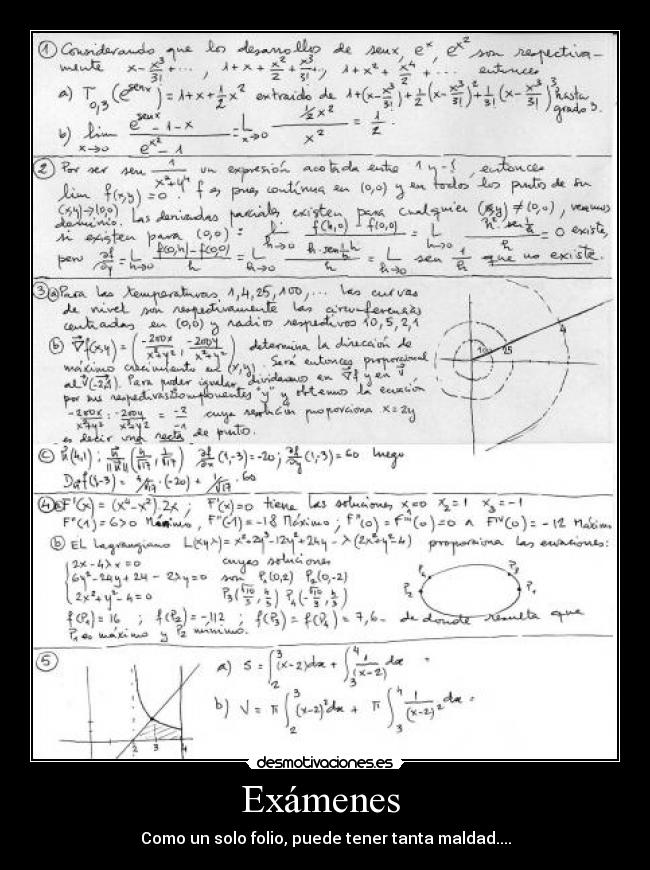 ① Considerando que los desarrollos de senx, e^x, e^x² son respectiva-
mente x - x³/3! + ..., 1 + x + x²/2 + x³/3! .., 1 + x² + x⁴/2 + ... entonces
a) T₀,₃ (e^senx) = 1 + x + 1/2 x² extraido de 1 + (x - x³/3!) + 1/2 (x - x³/3!)² + 1/3! (x - x³/3!)³ hasta grado 3.
b) lim x→0 (e^senx - 1 - x)/(e^x² - 1) = L x→0 (1/2 x²)/x² = 1/2.
② Por ser sen 1/(x²+y⁴) un expresión acotada entre 1 y -1, entonces
lim (x,y)→(0,0) f(x,y) = 0. f es pues contínua en (0,0) y en todos los puntos de su
dominio. Las derivadas parciales existen para cualquier (x,y) ≠ (0,0), veamos
si existen para (0,0): L h→0 (f(h,0) - f(0,0))/h = L h→0 = 0 existe,
pero ∂f/∂y = L h→0 (f(0,h) - f(0,0))/h = L h→0 = L h→0 sen 1/h que no existe.
③ ⓐ Para las temperaturas 1, 4, 25, 100, ... las curvas
de nivel son respectivamente las circunferencias
centradas en (0,0) y radios respectivos 10, 5, 2, 1
ⓑ ∇f(x,y) = (-200x/x²+y², -200y/x²+y²) determina la dirección de
máximo crecimiento en (x,y). Será entonces proporcional
al v(-2,-1). Para poder igualar dividamos en ∇f y en v
por sus respectivas componentes "y" y obtemo la ecuación
-200x/x²+y² : -200y/x²+y² = -2/-1 cuya resolución proporciona x = 2y
es decir una recta de puntos.
100 25 4
ⓒ n(4,1); n/||n|| (4/√17, 1/√17) ∂f/∂x (1,-3) = -20; ∂f/∂y (1,-3) = 60 luego
Dnf(1-3) = 4/√17 · (-20) + 1/√17 · 60
④ ⓐ F'(x) = (x⁴ - x²) · 2x; F'(x) = 0 tiene las soluciones x=0 x₂=1 x₃=-1
F''(1) = 6>0 Mínimo, F''(-1) = -18 Máximo; F''(0) = F'''(0) = 0 ∧ F^IV(0) = -12 Máximo
ⓑ El Lagrangiano L(xyλ) = x²+2y³-12y²+24y - λ(2x²+y²-4) proporciona las ecuaciones:
2x - 4λx = 0 cuyas soluciones
6y² - 24y + 24 - 2λy = 0 son P₁(0,2) P₂(0,-2)
2x² + y² - 4 = 0 P₃(√10/3, 4/3) P₄(-√10/3, 4/3)
P₄ P₃ P₂ P₁
f(P₁) = 16; f(P₂) = -112; f(P₃) = f(P₄) = 7,6.. de donde resulta que
P₁ es máximo y P₂ mínimo.
⑤ a) S = ∫₂³ (x-2)dx + ∫₃⁴ 1/(x-2) dx =
b) V = π ∫₂³ (x-2)² dx + π ∫₃⁴ 1/(x-2)² dx =
2 3 4
desmotivaciones.es
Exámenes
Como un solo folio, puede tener tanta maldad....